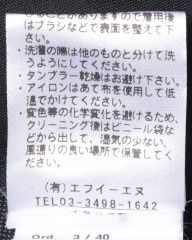 るものとがありますので着用後
はブラシなどで表面を整えて下
さい。
・洗濯の際は他のものと分けて洗
うようにして下さい。
・タンブラー乾燥はお避け下さい。
・アイロンはあて布を使用して低
温でかけてください。
・変色等の化学変化を避けるため、
クリーニング後はビニール袋な
どから出して、湿気の少ない、
風通りの良い場所で保管してく
ださい。
(有)エフイーエヌ
TEL03-3498-1642
Ord. 3 / 40